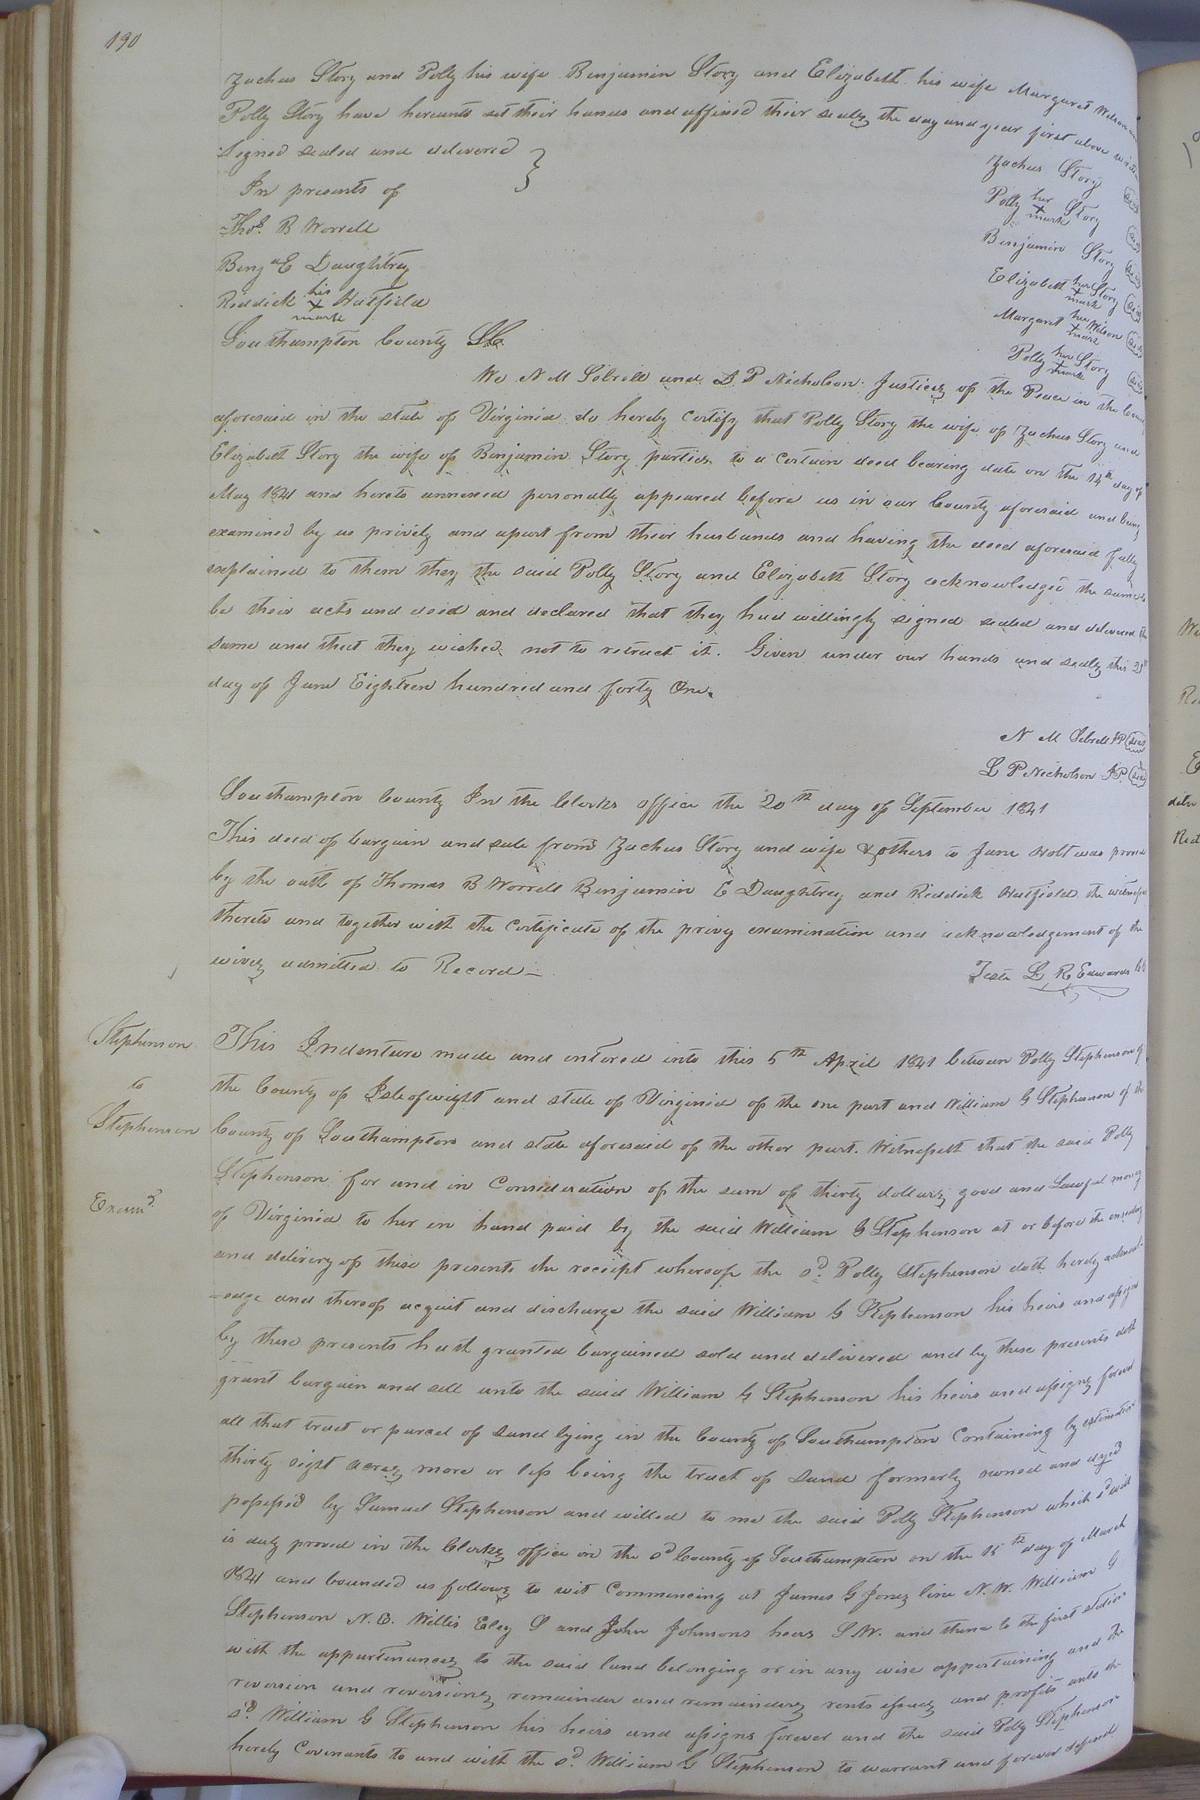 190
Zachus Story and Polly his wife Benjamin Story and Elizabeth his wife Margaret Wilson and
Polly Story have hereunto set their hands and affixed their sealz the day and year first above written
Signed sealed and delivered }
In presents of
Thos. B Worrell
Benjn E Daughtrey
Riddick his x mark Hatfield
Zachus Story (Seal)
Polly her x mark Story (Seal)
Benjamin Story (Seal)
Elizabeth her x mark Story (Seal)
Margaret her x mark Wilson (Seal)
Polly her x mark Story (Seal)
Southampton County SS.
We N M Sebrell and L P Nicholson Justices of the Peace in the County
aforesaid in the state of Virginia do hereby Certify that Polly Story the wife of Zachus Story and
Elizabeth Story the wife of Benjamin Story parties to a Certain deed bearing date on the 14th day of
May 1841 and hereto annexed personally appeared before us in our County aforesaid and being
examined by us privily and apart from their husbands and having the deed aforesaid fully
explained to them they the said Polly Story and Elizabeth Story acknowledged the same to
be their acts and deed and declared that they had willingly signed sealed and delivered the
same and that they wished not to retract it. Given under our hands and seals this
day of June Eighteen hundred and forty One.
N M Sebrell JP (Seal)
L P Nicholson JP (Seal)
Southampton County In the Clerks office the 20th day of September 1841
This deed of bargain and sale from Zachus Story and wife & others to Jane Holt was proved
by the oath of Thomas B Worrell Benjamin E Daughtrey and Riddick Hatfield the witnesses
thereto and together with the Certificate of the privy examination and acknowledgement of the
wives admitted to Record—
Teste L R Edwards Clk
Stephenson
to
Stephenson
Examd.
This Indenture made and entered into this 5th April 1841 between Polly Stephenson of
the County of Isleofwight and state of Virginia of the one part and William G Stephenson of the
County of Southampton and state aforesaid of the other part. Witnesseth that the said Polly
Stephenson for and in Consideration of the sum of thirty dollars good and Lawful money
of Virginia to her in hand paid by the said William G Stephenson at or before the ensealing
and delivery of these presents the receipt whereof the sd. Polly Stephenson doth hereby acknowl-
-edge and thereof acquit and discharge the said William G Stephenson his heirs and assigns
by these presents hath granted bargained sold and delivered and by these presents doth
grant bargain and sell unto the said William G Stephenson his heirs and assigns forever
all that tract or parcel of Land lying in the County of Southampton Containing by estimation
thirty eight acres more or less being the tract of Land formerly owned and
possess'd by Samuel Stephenson and willed to me the said Polly Stephenson which sd will
is duly proved in the Clerks office in the sd County of Southampton on the 15th day of March
1841 and bounded as follows to wit Commencing at James G Jones line N.W. William G
Stephenson N.E. Willis Eley S and John Johnsons heirs S.W. and thence to the first station
with the appurtenances to the said land belonging or in any wise appertaining and the
reversion and reversions remainder and remainders rents issues and profits unto the
sd. William G Stephenson his heirs and assigns forever and the said Polly Stephenson
hereby Covenants to and with the sd. William G Stephenson to warrant and forever defend